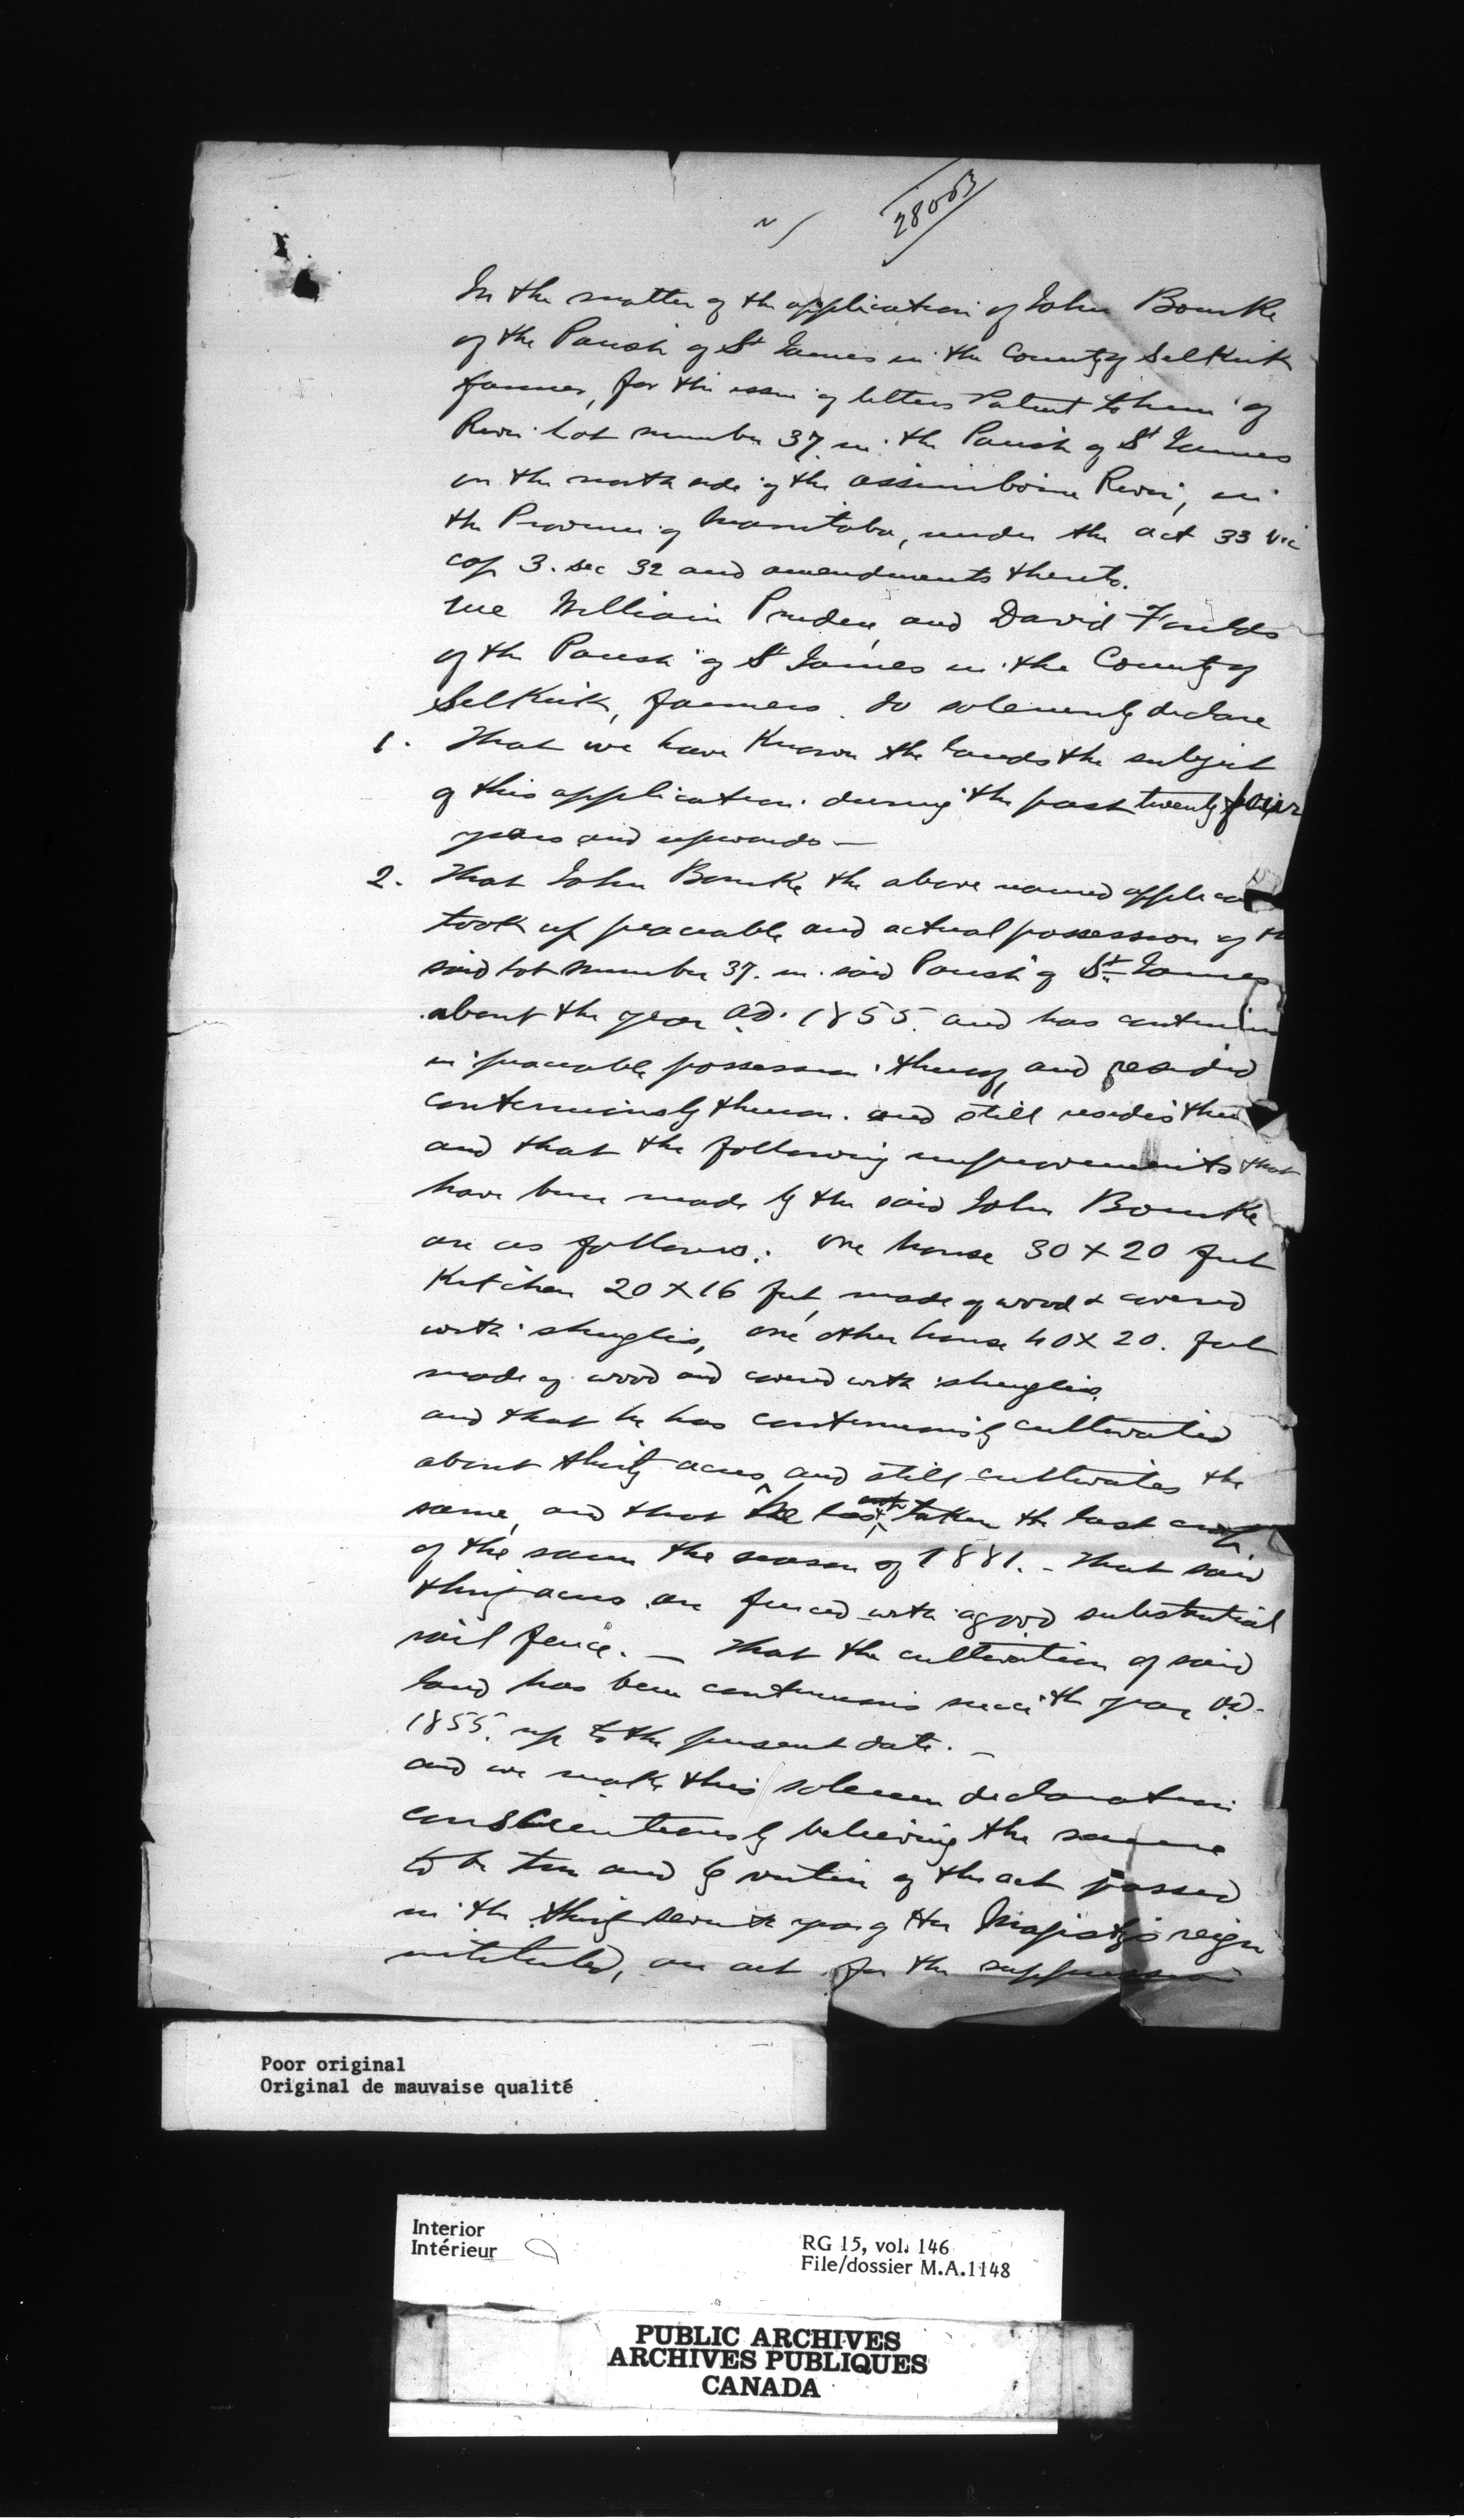 28063
In the matter of the application of John Bourke
of the Parish of St James in the County of Selkirk
farmer, for the issue of letters Patent to him of
River Lot number 37. in the Parish of St James
on the north side of the Assiniboine River, in
the Province of Manitoba, under the Act 33 Vic
cap 3. sec 32 and amendments thereto.
We William Pruden, and David Foulds
of the Parish of St James in the County of
Selkirk, farmers. do solemnly declare
1. That we have Known the lands the subject
of this application. during the past twenty four
years and upwards —
2. That John Bourke the above named applicant
took up peaceable and actual possession of the
said lot number 37. in said Parish of St James
about the year A.D. 1855. and has continued
in peaceable possession thereof, and resided
continuously thereon. and still resides there
and that the following improvements that
have been made by the said John Bourke
are as follows. One house 30 x 20 feet
Kitchen 20 x 16 feet, made of wood & covered
with shingles, one other house 40 x 20. feet
made of wood and covered with shingles.
and that he has continuously cultivated
about thirty acres and still cultivates the
same, and that he has taken the last crop
of the same the season of 1881. - That said
thirty acres are fenced with a good substantial
rail fence. — That the cultivation of said
land has been continuous since the year A.D.
1855. up to the present date. —
and we make this solemn declaration
conscientiously believing the same
to be true and by virtue of the act passed
in the thirty seventh year of Her Majesty's reign
intituled, an act for the suppression
Poor original
Original de mauvaise qualité
Interior
Intérieur
RG 15, vol. 146
File/dossier M.A.1148
PUBLIC ARCHIVES
ARCHIVES PUBLIQUES
CANADA